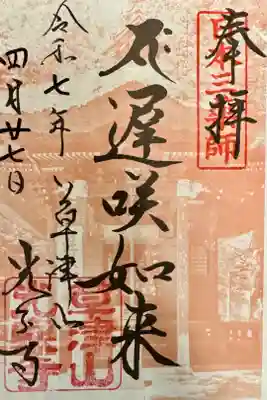 奉拝
日本三薬師
遅咲如来
草津山
光泉寺
令和七年
四月廿七日
草津山
光泉寺